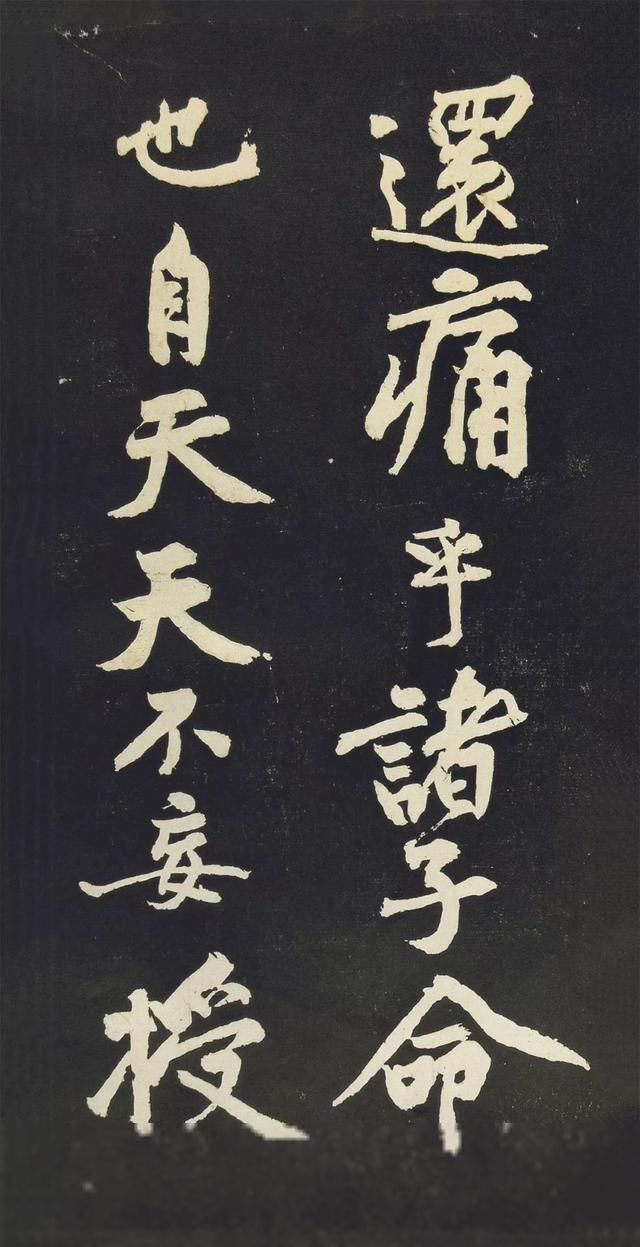 還痛乎諸子命
也自天天不妄授